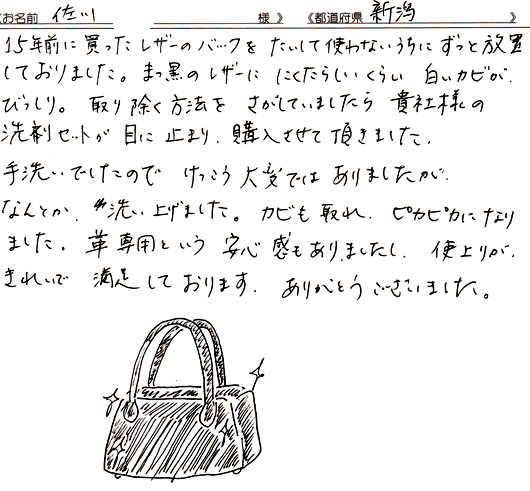 《お名前 佐川 様》 《都道府県 新潟 》
15年前に買ったレザーのバックを たいして使わないうちに ずっと放置
しておりました。まっ黒のレザーに にくたらしいくらい 白いカビが、
びっしり。 取り除く方法を さがしていましたら 貴社様の
洗剤セットが 目に止まり、購入させて頂きました。
手洗いでしたので けっこう大変ではありましたが、
なんとか、洗い上げました。カビも取れ、ピカピカになり
ました。革専用という 安心感もありましたし、仕上りが、
きれいで 満足しております。 ありがとうございました。